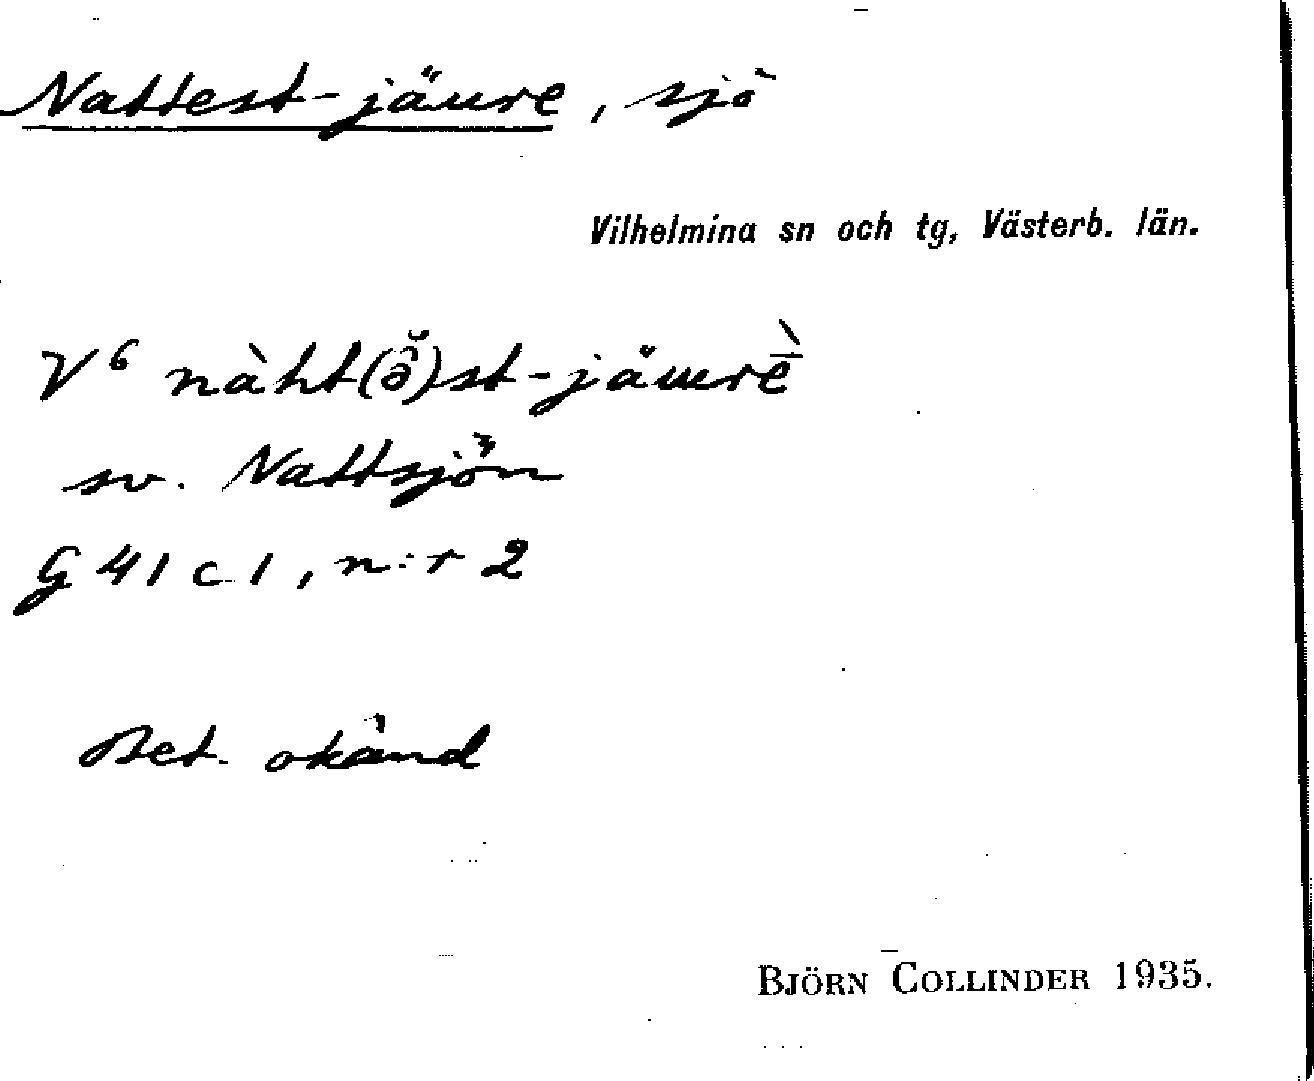 Nattest-jäure, sjö
Vilhelmina sn och tg, Västerb. län.
V⁶ nàht(ə̑̆)st-jäurḕ
sv. Nattsjön
G 41 c 1, n:r 2
Bet. okänd
BJÖRN COLLINDER 1935.